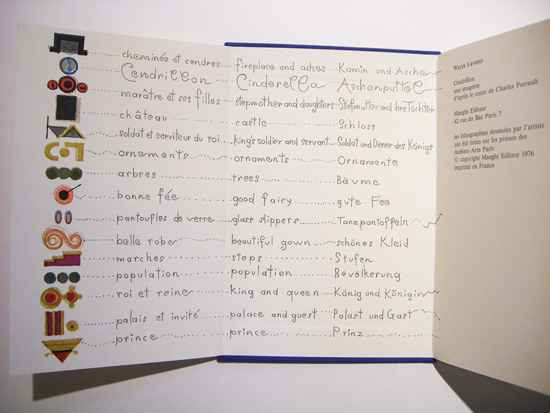 cheminée et cendres fireplace and ashes Kamin und Asche
Cendrillon Cinderella Aschenputtel
marâtre et ses filles stepmother and daughters Stiefmutter und ihre Töchter
château castle Schloss
soldat et serviteur du roi king's soldier and servant Soldat und Diener des Königs
ornements ornaments Ornamente
arbres trees Bäume
bonne fée good fairy gute Fee
pantoufles de verre glass slippers Tanzpantoffeln
belle robe beautiful gown schönes Kleid
marches steps Stufen
population population Bevölkerung
roi et reine king and queen König und Königin
palais et invité palace and guest Palast und Gast
prince prince Prinz
Warja Lavater
Cendrillon
une imagerie
d'après le conte de Charles Perrault
Maeght Editeur
42 rue du Bac Paris 7
les lithographies dessinées par l'artiste
ont été tirées sur les presses des
Ateliers Arte Paris
© copyright Maeght Editeur 1976
imprimé en France